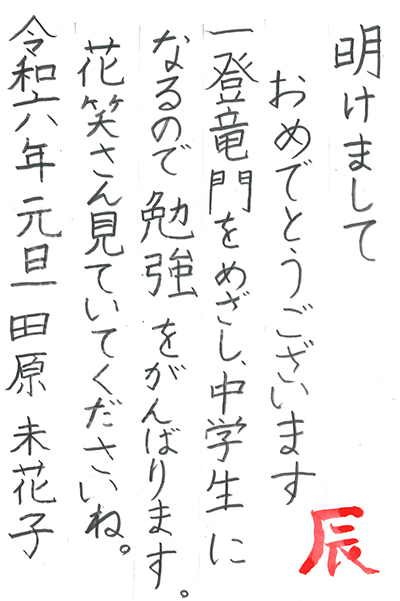 明けまして
おめでとうございます
一登竜門をめざし、中学生に
なるので勉強をがんばります。
花笑さん見ていてくださいね。
令和六年元旦 田原 未花子
辰